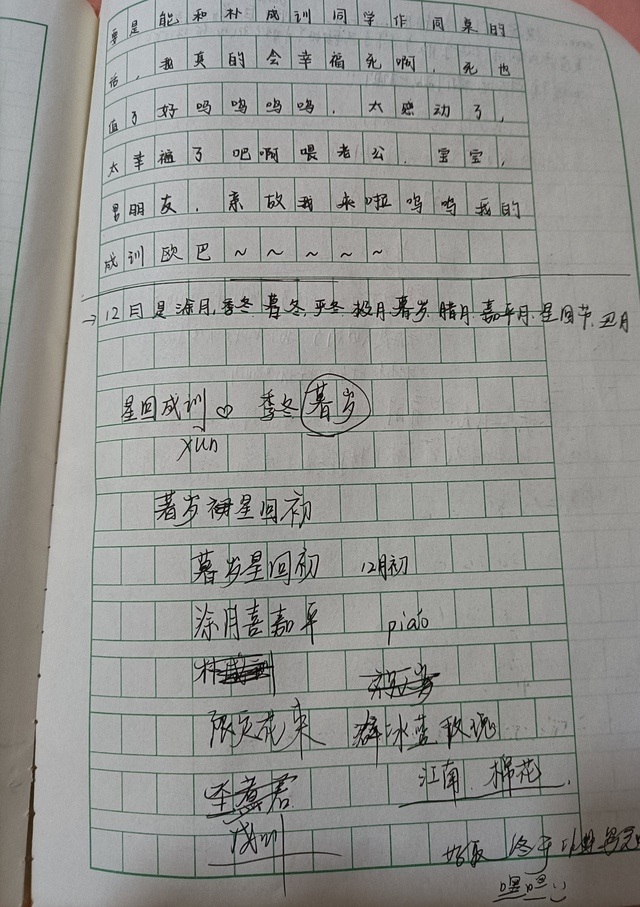 要是能和朴成训同学作同桌的
话，我真的会幸福死啊，死也
值了好吗呜呜呜，太感动了，
太幸福了吧啊喂老公，宝宝，
男朋友，亲故我来啦呜呜我的
成训欧巴～～～～～
→12月是涂月,季冬暮冬,严冬极月暮岁腊月嘉平月星回节、丑月
星回成训♡ 季冬暮岁
xùn
暮岁 星回初
暮岁星回初 12月初
涂月喜嘉平 piáo
花束 冰蓝玫瑰
江南 棉花
成训
终于
嘿嘿